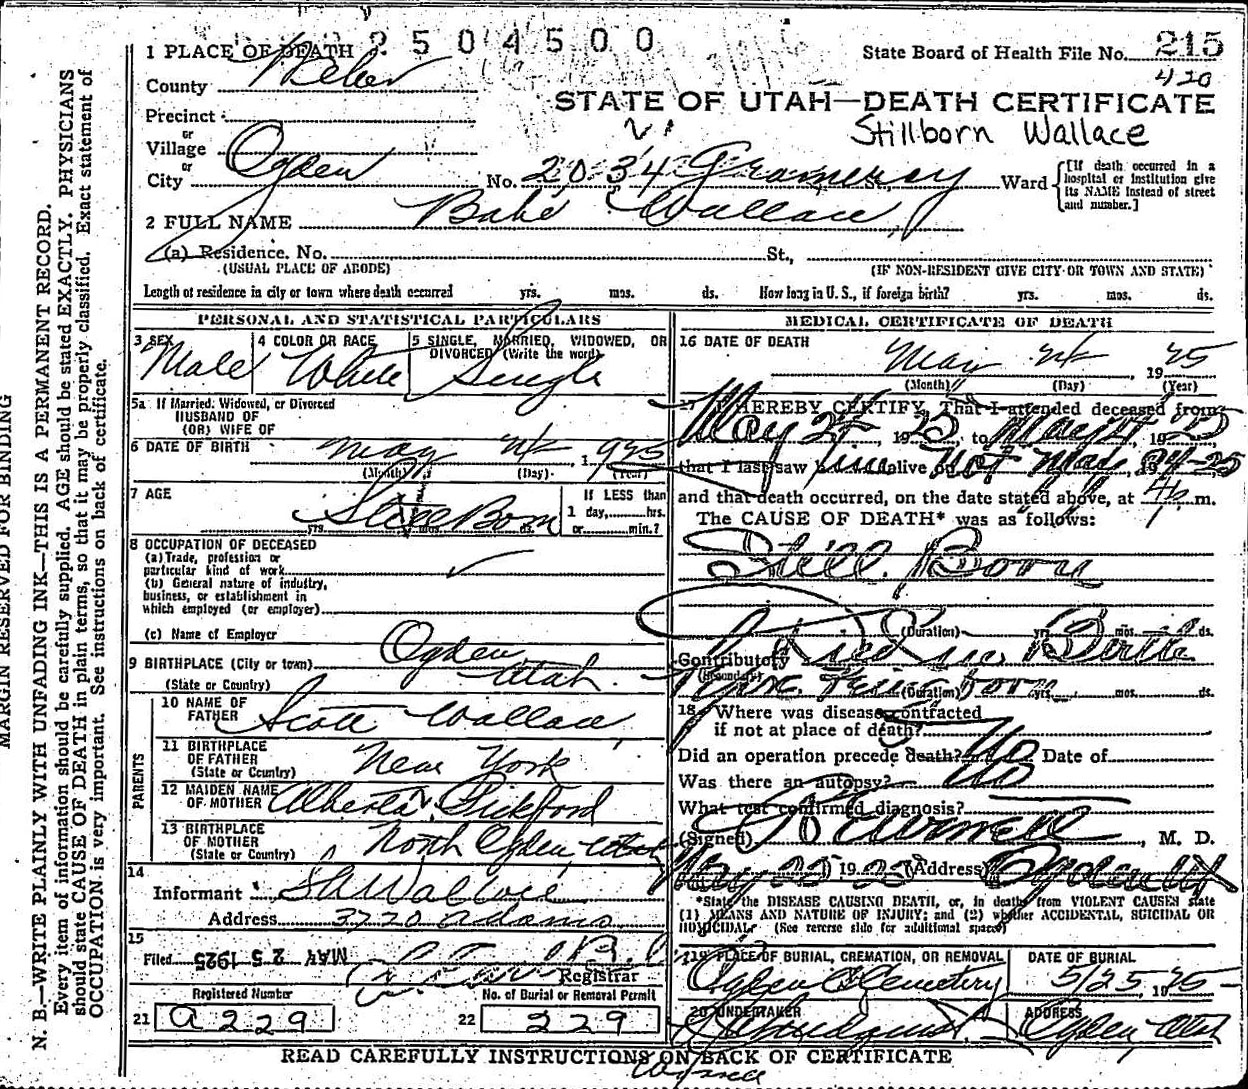 2504500
1 PLACE OF DEATH
State Board of Health File No. 215
County Weber
420
STATE OF UTAH—DEATH CERTIFICATE
Precinct
Stillborn Wallace
or
Village
or
City Ogden No. 2034 Gramercy St., Ward
[If death occurred in a hospital or institution give its NAME instead of street and number.]
2 FULL NAME Babe Wallace
(a) Residence. No. St.,
(USUAL PLACE OF ABODE) (IF NON-RESIDENT GIVE CITY OR TOWN AND STATE)
Length of residence in city or town where death occurred yrs. mos. ds. How long in U. S., if foreign birth? yrs. mos. ds.
PERSONAL AND STATISTICAL PARTICULARS
3 SEX 4 COLOR OR RACE 5 SINGLE, MARRIED, WIDOWED, OR DIVORCED (Write the word)
Male White Single
5a If Married, Widowed, or Divorced
HUSBAND OF
(OR) WIFE OF
6 DATE OF BIRTH May 24 1925
(Month) (Day) (Year)
7 AGE
If LESS than
1 day, hrs.
Still Born
yrs. mos. ds. or min.?
8 OCCUPATION OF DECEASED
(a) Trade, profession or
particular kind of work
(b) General nature of industry,
business, or establishment in
which employed (or employer)
(c) Name of Employer
9 BIRTHPLACE (City or town) Ogden
(State or Country) Utah.
PARENTS
10 NAME OF
FATHER Scott Wallace
11 BIRTHPLACE
OF FATHER
(State or Country) New York
12 MAIDEN NAME
OF MOTHER Alberta Pickford
13 BIRTHPLACE
OF MOTHER
(State or Country) North Ogden Utah
14
Informant Wallace
Address 3720 Adams
15
Filed MAY 25 1925
Registrar
Registered Number No. of Burial or Removal Permit
21 a229 22 229
MEDICAL CERTIFICATE OF DEATH
16 DATE OF DEATH
May 24, 1925
(Month) (Day) (Year)
17 I HEREBY CERTIFY, That I attended deceased from
May 24, 1925, to May 24, 1925
that I last saw h alive on not May 24-25
and that death occurred, on the date stated above, at 4 p.m.
The CAUSE OF DEATH* was as follows:
Still Born
(Duration) yrs. mos. ds.
Contributory
(Secondary)
Born
(Duration) yrs. mos. ds.
18 Where was disease contracted
if not at place of death?
Did an operation precede death? No Date of
Was there an autopsy? No
What test confirmed diagnosis?
(Signed) , M. D.
May 25, 1925 (Address) Ogden Ut
*State the DISEASE CAUSING DEATH, or, in deaths from VIOLENT CAUSES state
(1) MEANS AND NATURE OF INJURY; and (2) whether ACCIDENTAL, SUICIDAL OR
HOMICIDAL. (See reverse side for additional space)
19 PLACE OF BURIAL, CREMATION, OR REMOVAL DATE OF BURIAL
Ogden Cemetery 5/25 1925
20 UNDERTAKER ADDRESS
Ogden Utah
READ CAREFULLY INSTRUCTIONS ON BACK OF CERTIFICATE
MARGIN RESERVED FOR BINDING
N. B.—WRITE PLAINLY WITH UNFADING INK—THIS IS A PERMANENT RECORD.
Every item of information should be carefully supplied. AGE should be stated EXACTLY. PHYSICIANS
should state CAUSE OF DEATH in plain terms, so that it may be properly classified. Exact statement of
OCCUPATION is very important. See instructions on back of certificate.